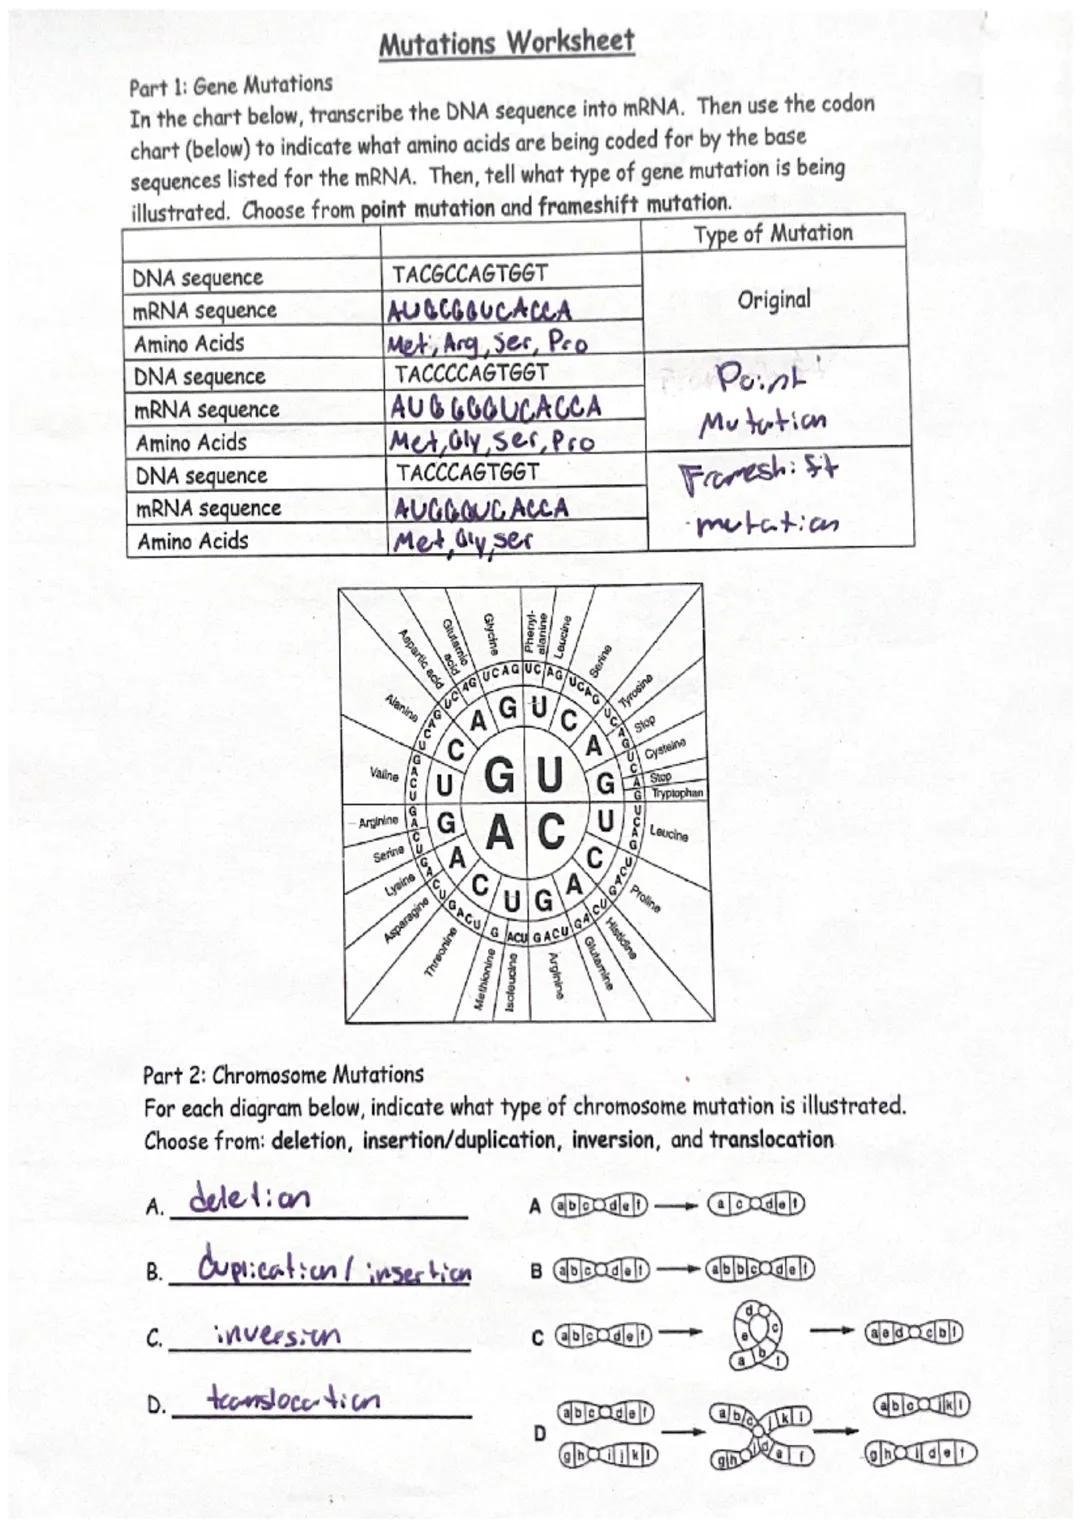 Mutations Worksheet
Part 1: Gene Mutations
In the chart below, transcribe the DNA sequence into mRNA. Then use the codon
chart (below) to indicate what amino acids are being coded for by the base
sequences listed for the mRNA. Then, tell what type of gene mutation is being
illustrated. Choose from point mutation and frameshift mutation.
Type of Mutation
DNA sequence TACGCCAGTGGT
mRNA sequence AUGCGGUCACCA Original
Amino Acids Met, Arg, Ser, Pro
DNA sequence TACCCCAGTGGT Point
mRNA sequence AUGGGGUCACCA Mutation
Amino Acids Met, Gly, Ser, Pro
DNA sequence TACCCAGTGGT Frameshift
mRNA sequence AUGGGUCACCA mutation
Amino Acids Met, Gly, ser
Glycine
Phenyl-
alanine
Leucine
Glutamic
acid
Serine
Aspartic acid
Tyrosine
Alanine
Stop
Cysteine
Valine
Stop
Tryptophan
G U
A C
Arginine
Leucine
Serine
Lysine
Proline
Asparagine
Histidine
Threonine
Glutamine
Methionine
Isoleucine
Arginine
Part 2: Chromosome Mutations
For each diagram below, indicate what type of chromosome mutation is illustrated.
Choose from: deletion, insertion/duplication, inversion, and translocation
A. deletion A a b c d e f a c d e f
B. duplication / insertion B a b c d e f a b b c d e f
C. inversion C a b c d e f d c e b a f a e d c b f
D. translocation D a b c d e f a b c j k l a b c j k l
g h i j k l g h i d e f g h i d e f